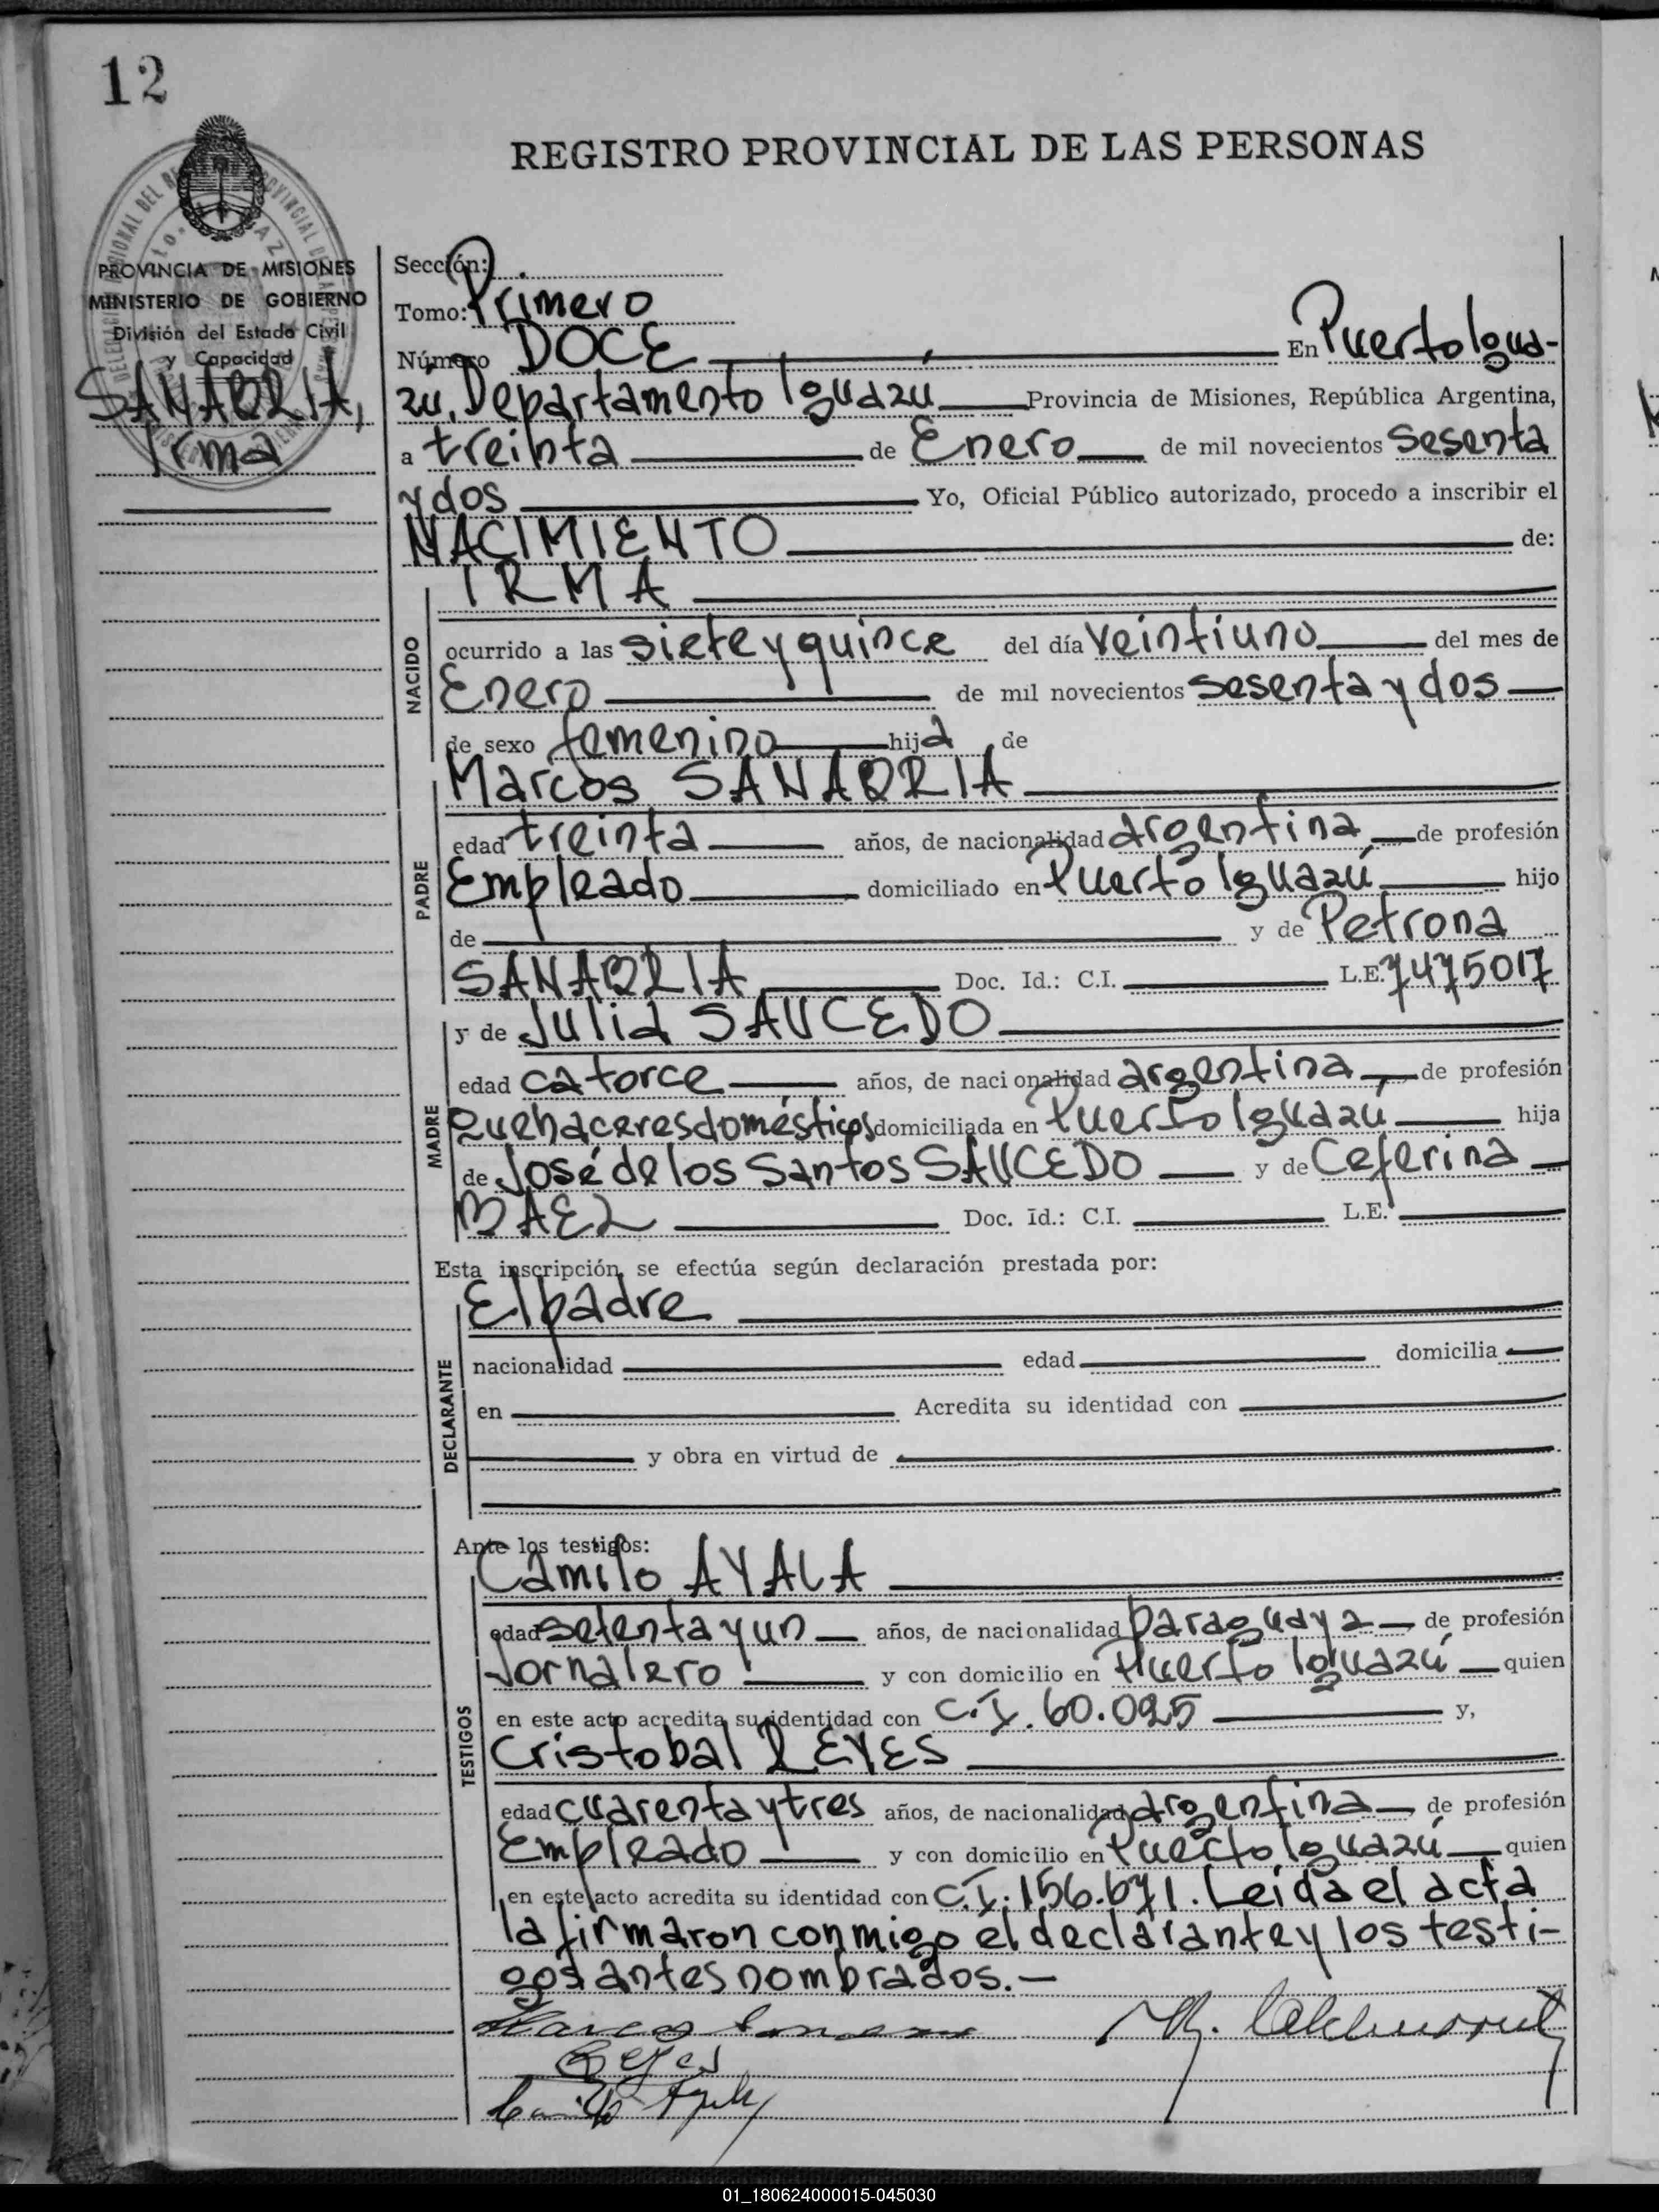 12
REGISTRO PROVINCIAL DE LAS PERSONAS
PROVINCIA DE MISIONES
MINISTERIO DE GOBIERNO
División del Estado Civil
y Capacidad
SANABRIA,
Irma
Sección:
Tomo: Primero
Número DOCE En Puerto Igua-
zú, Departamento Iguazú Provincia de Misiones, República Argentina,
a treinta de Enero de mil novecientos sesenta
y dos Yo, Oficial Público autorizado, procedo a inscribir el
NACIMIENTO de:
IRMA
NACIDO
ocurrido a las siete y quince del día veintiuno del mes de
Enero de mil novecientos sesenta y dos
de sexo femenino hija de
Marcos SANABRIA
PADRE
edad treinta años, de nacionalidad argentina de profesión
Empleado domiciliado en Puerto Iguazú hijo
de y de Petrona
SANABRIA Doc. Id.: C.I. L.E. 7475017
MADRE
y de Julia SAUCEDO
edad catorce años, de nacionalidad argentina, de profesión
Quehaceres domésticos domiciliada en Puerto Iguazú hija
de José de los Santos SAUCEDO y de Ceferina
BAEZ Doc. Id.: C.I. L.E.
Esta inscripción se efectúa según declaración prestada por:
DECLARANTE
El padre
nacionalidad edad domicilia
en Acredita su identidad con
y obra en virtud de
Ante los testigos:
TESTIGOS
Camilo AYALA
edad setenta y un años, de nacionalidad paraguaya de profesión
Jornalero y con domicilio en Puerto Iguazú quien
en este acto acredita su identidad con C.I. 60.025 y,
Cristobal REYES
edad cuarenta y tres años, de nacionalidad argentina de profesión
Empleado y con domicilio en Puerto Iguazú quien
en este acto acredita su identidad con C.I. 156.671. Leida el acta
la firmaron conmigo el declarante y los testi-
gos antes nombrados.-
Reyes
Camilo Ayala
01_180624000015-045030